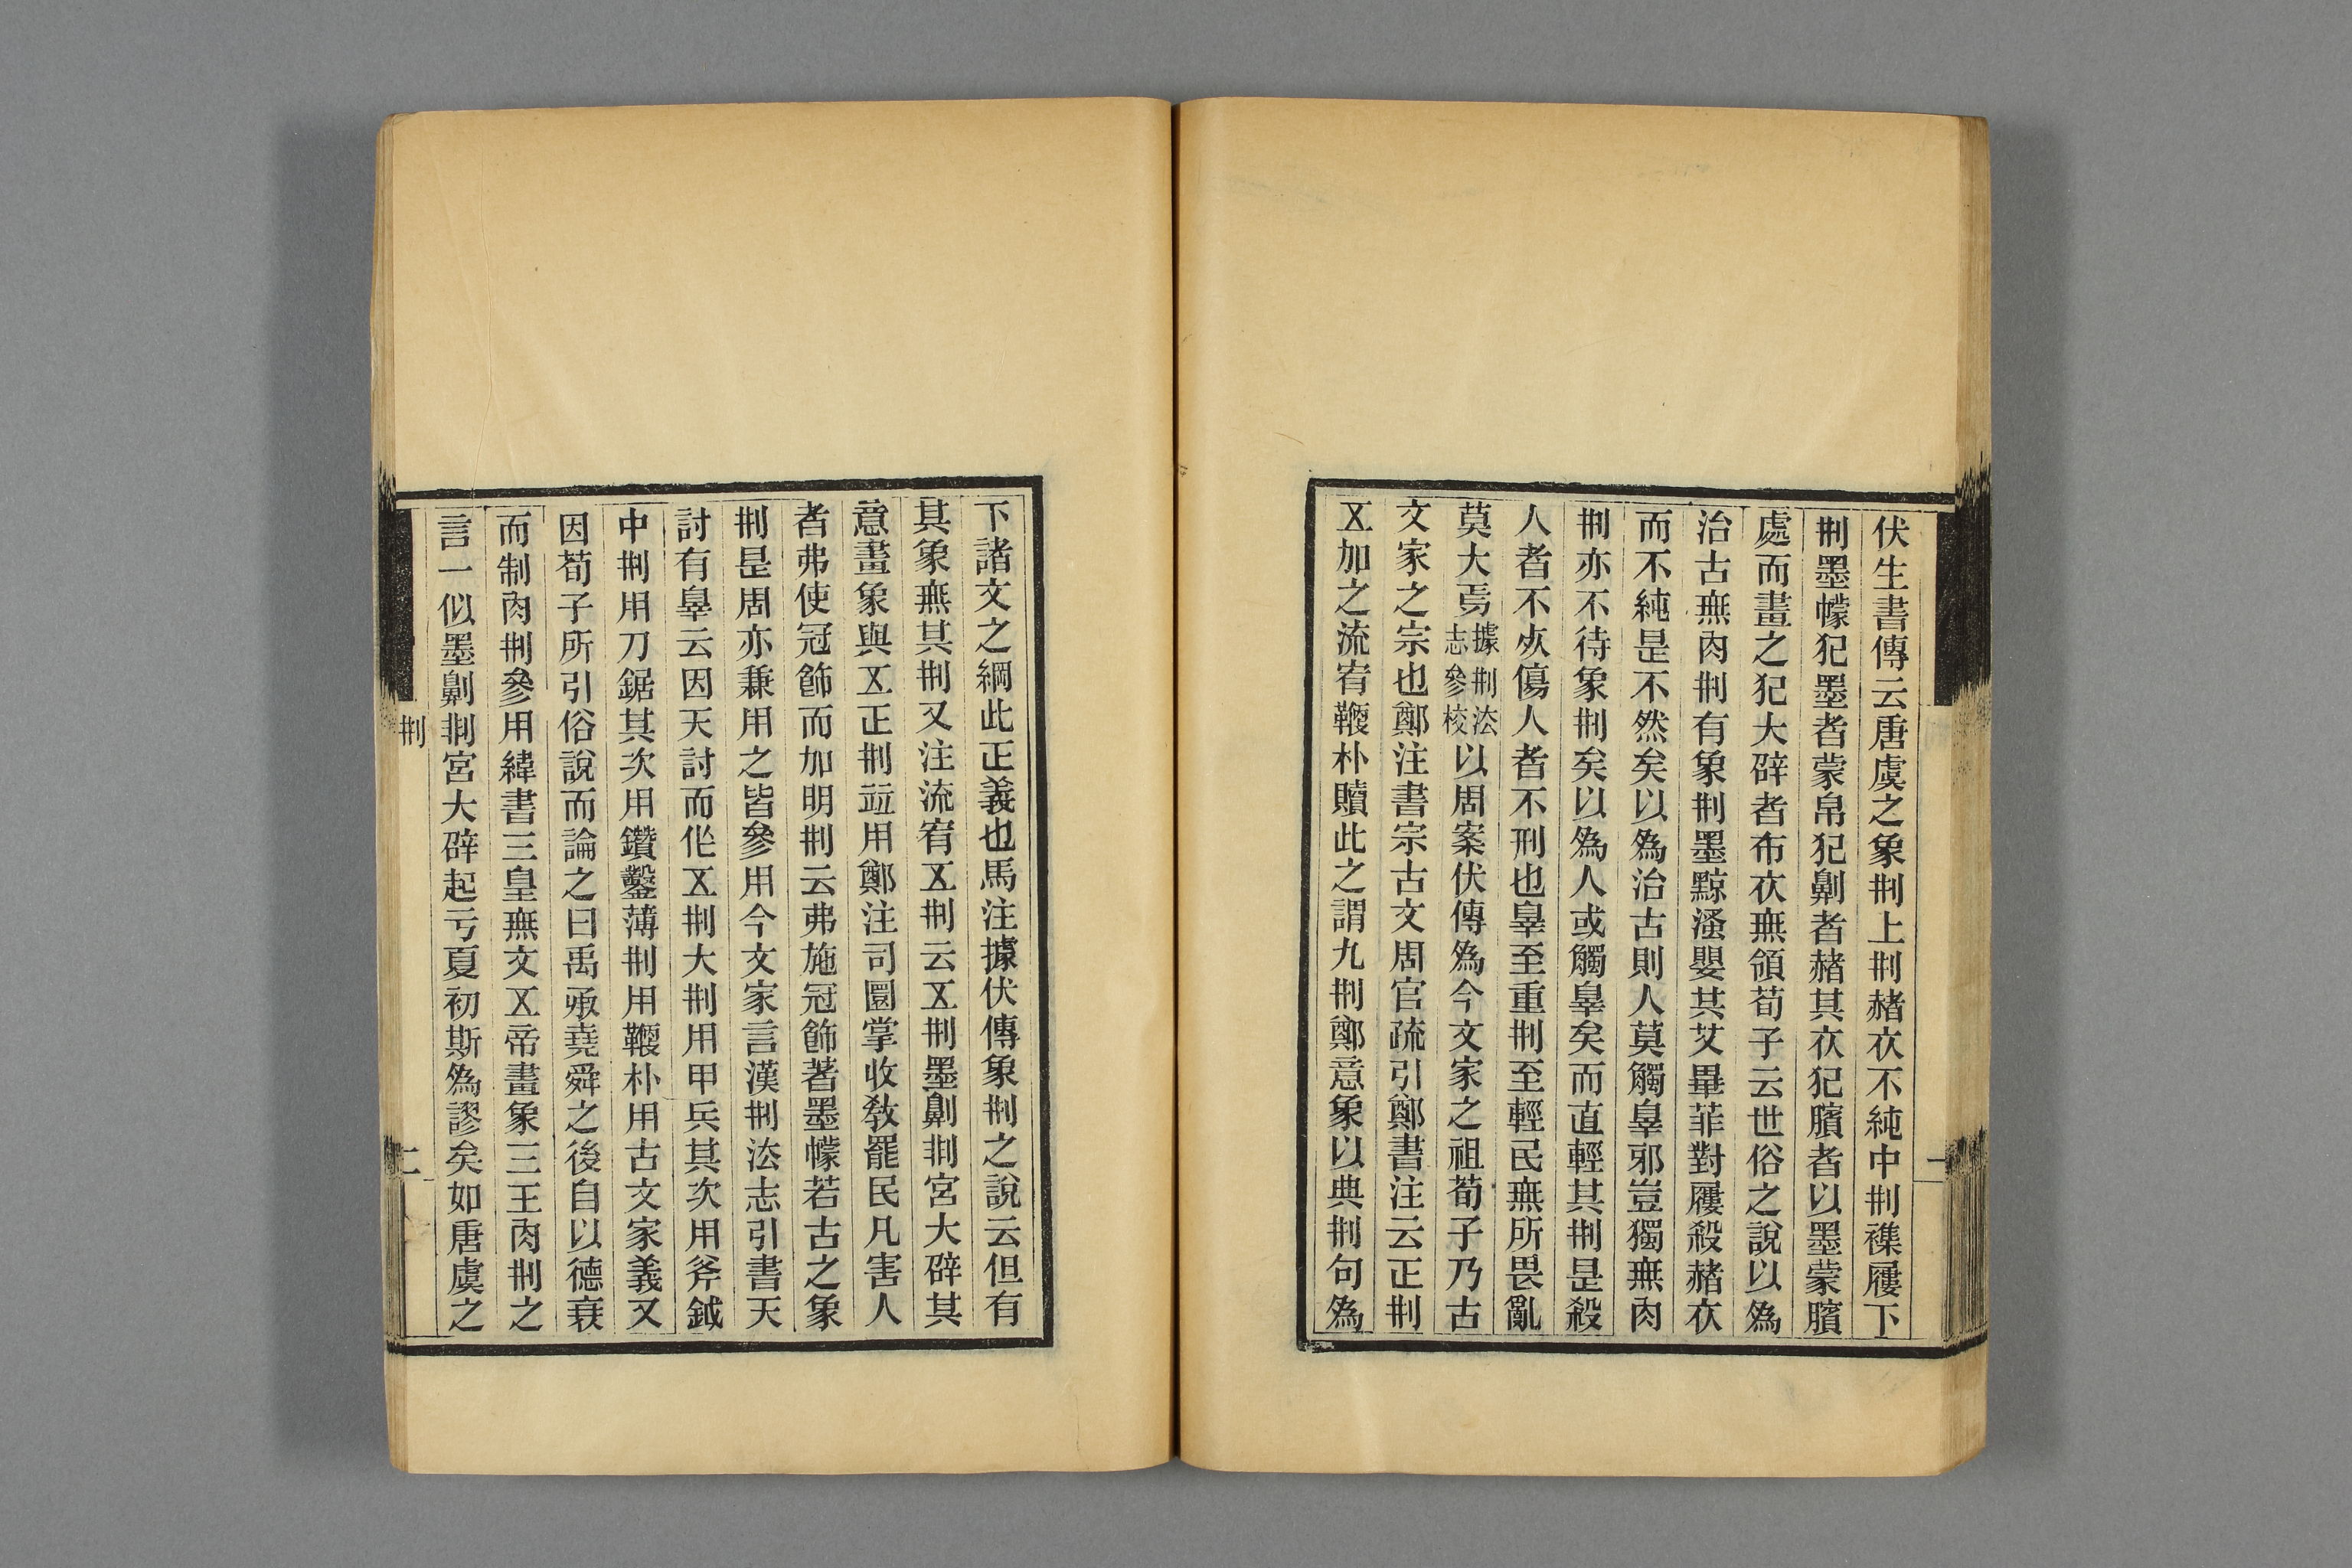 伏生書傳云唐虞之象㓝上㓝赭衣不純中㓝襍屨下
㓝墨幪犯墨者蒙帛犯劓者赭其衣犯臏者以墨蒙臏
處而畫之犯大辟者布衣無領荀子云世俗之說以爲
治古無肉㓝有象㓝墨黥慅嬰其艾畢菲對屨殺赭衣
而不純是不然矣以爲治古則人莫觸辠邪豈獨無肉
㓝亦不待象㓝矣以爲人或觸辠矣而直輕其㓝是殺
人者不㱾傷人者不刑也辠至重㓝至輕民無所畏亂
莫大焉據㓝法志參校以周案伏傳爲今文家之祖荀子乃古
文家之宗也鄭注書宗古文周官疏引鄭書注云正㓝
五加之流宥鞭朴贖此之謂九㓝鄭意象以典㓝句爲
一
下諸文之綱此正義也馬注據伏傳象㓝之說云但有
其象無其㓝又注流宥五㓝云五㓝墨劓剕宮大辟其
意畫象與五正㓝竝用鄭注司圜掌收敎罷民凡害人
者弗使冠飾而加明㓝云弗施冠飾著墨幪若古之象
㓝是周亦兼用之皆參用今文家言漢㓝法志引書天
討有辠云因天討而作五㓝大㓝用甲兵其次用斧鉞
中㓝用刀鋸其次用鑽鑿薄㓝用鞭朴用古文家義又
因荀子所引俗說而論之曰禹承堯舜之後自以德衰
而制肉㓝參用緯書三皇無文五帝畫象三王肉㓝之
言一似墨劓剕宮大辟起亏夏初斯爲謬矣如唐虞之
㓝
二